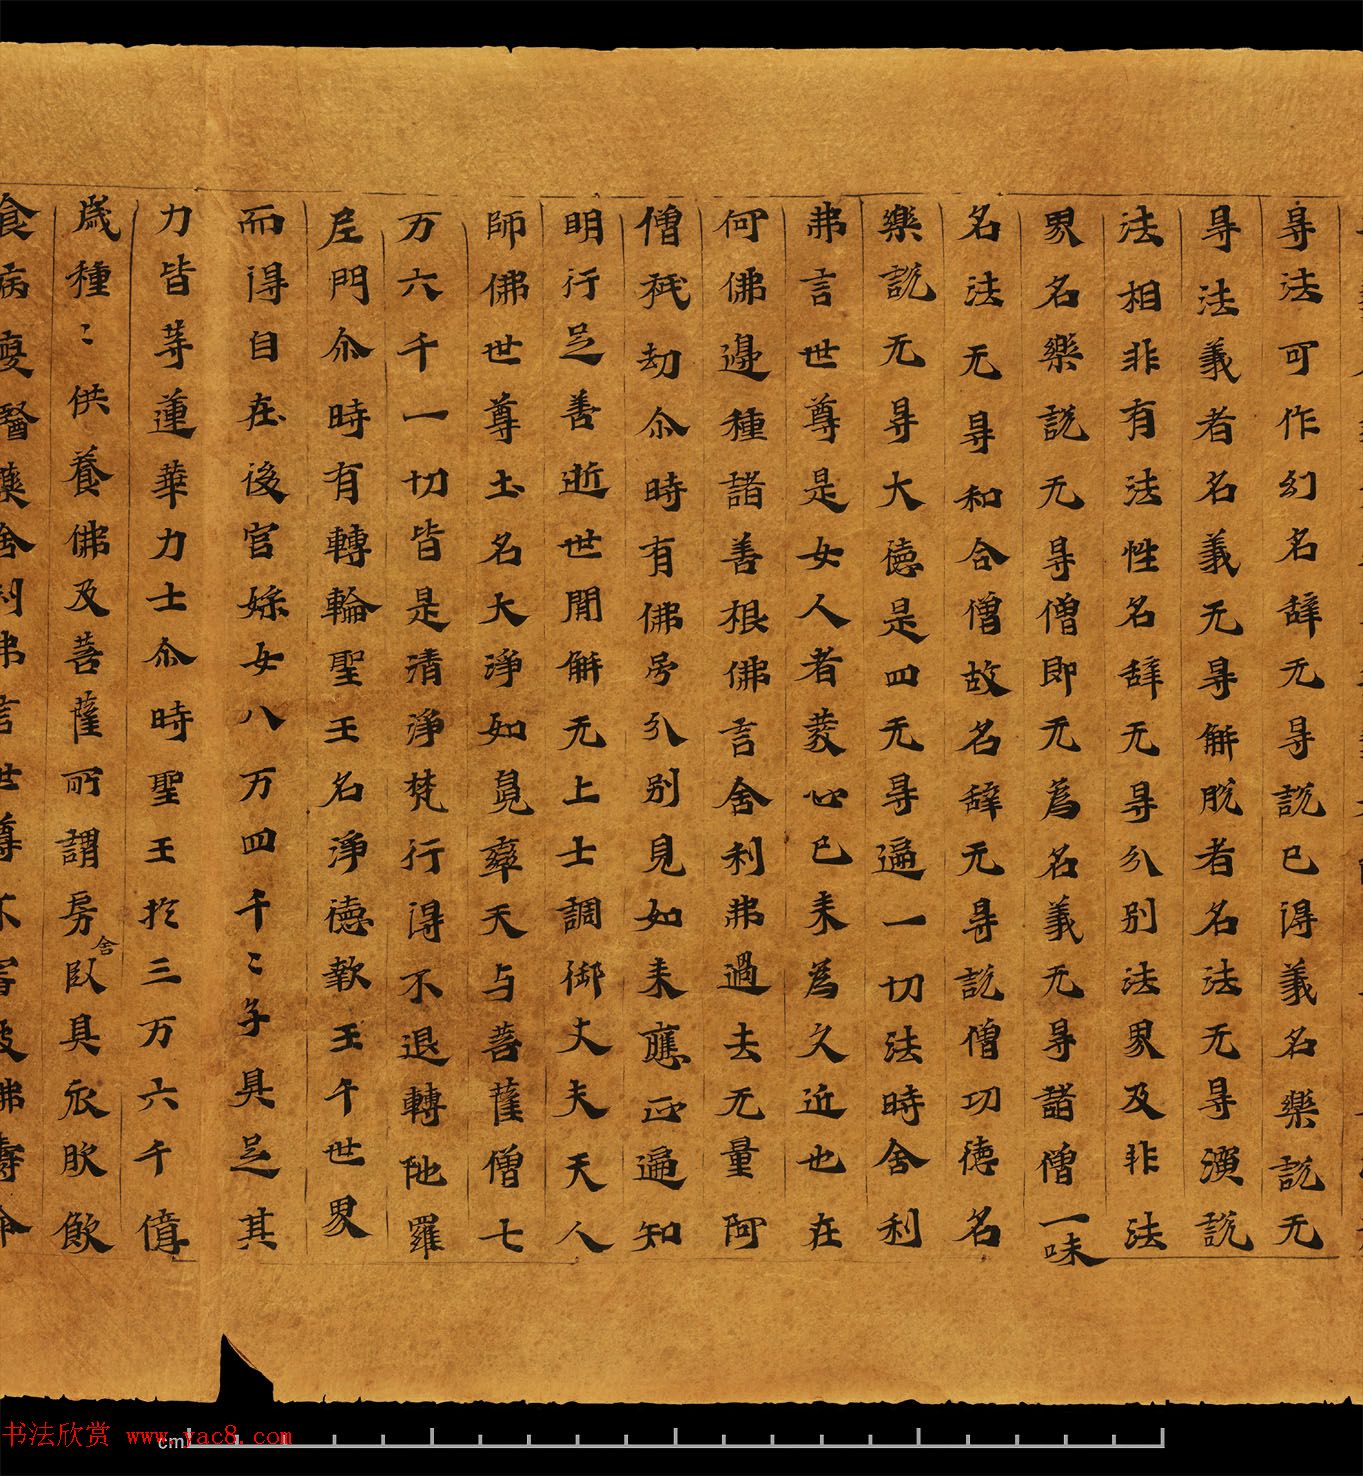 㝵法可作幻名辞无㝵説已得義名樂説无
㝵法義者名義无㝵解脱者名法无㝵演説
法相非有法性名辞无㝵分別法界及非法
界名樂説无㝵僧即无為名義无㝵諸僧一味
名法无㝵和合僧故名辞无㝵説僧功德名
樂説无㝵大德是四无㝵遍一切法時舍利
弗言世尊是女人者發心已來為久近也在
何佛邊種諸善根佛言舍利弗過去无量阿
僧祇劫尒時有佛号分別見如来應正遍知
明行足善逝世間解无上士調御丈夫天人
師佛世尊土名大淨如兜率天与菩薩僧七
万六千一切皆是清淨梵行得不退轉陁羅
尼門尒時有轉輪聖王名淨德歡王千世界
而得自在後宫婇女八万四千〻子具足其
力皆等蓮華力士尒時聖王扵三万六千億
歳種〻供養佛及菩薩所謂房舍卧具衣服飲
食病瘦醫藥舍利弗言世尊不審彼佛壽命
书法欣赏 www.yac8.com
cm